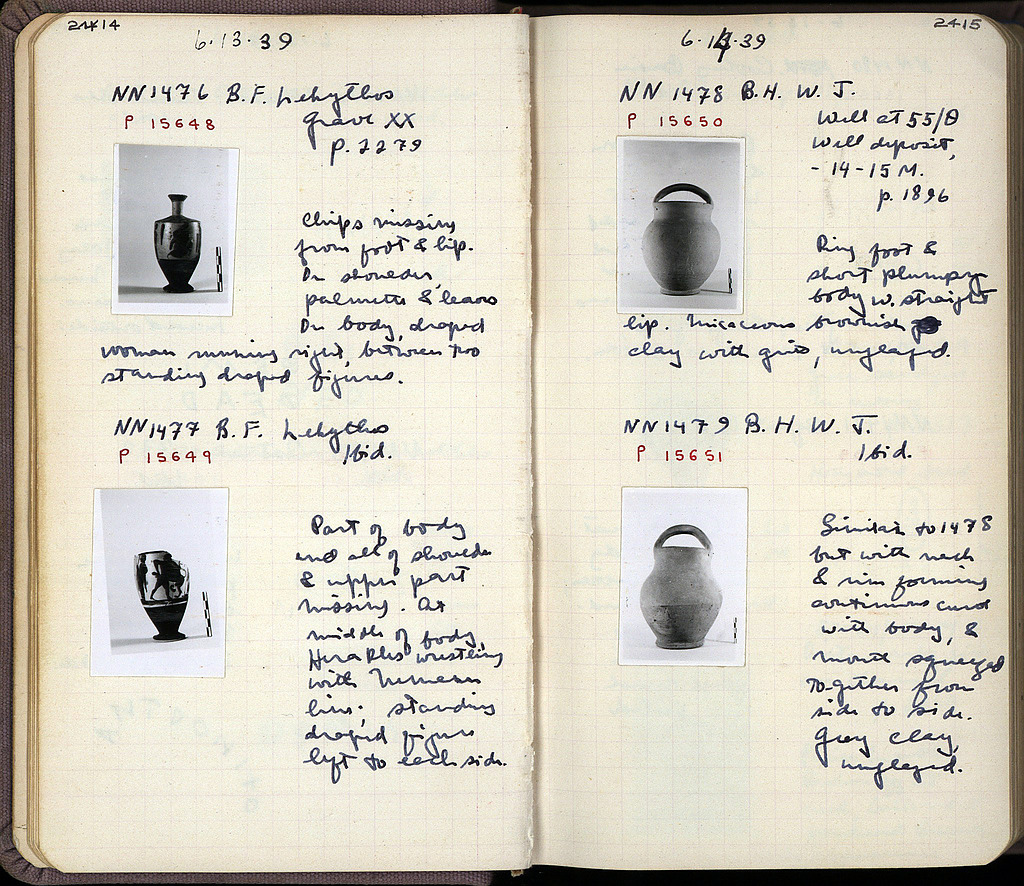 2414
6·13·39
NN1476 B.F. Lekythos
P 15648
Grave XX
p. 2279
Chips missing
from foot & lip.
On shoulder,
palmettes & leaves
On body, draped
woman running right, between two
standing draped figures.
NN1477 B.F. Lekythos
P 15649
Ibid.
Part of body
and all of shoulder
& upper part
missing. At
middle of body,
Herakles wrestling
with Nemean
lion; standing
draped figure
left to each side.
2415
6·14·39
NN 1478 B.H.W.J.
P 15650
Well at 55/Θ
Well deposit,
- 14-15 M.
p. 1896
Ring foot &
short plumpy
body w. straight
lip. Micaceous brownish
clay with grits, unglazed.
NN1479 B.H.W.J.
P 15651
Ibid.
Similar to 1478
but with neck
& rim forming
continuous curve
with body, &
mouth squeezed
together from
side to side.
Grey clay,
unglazed.